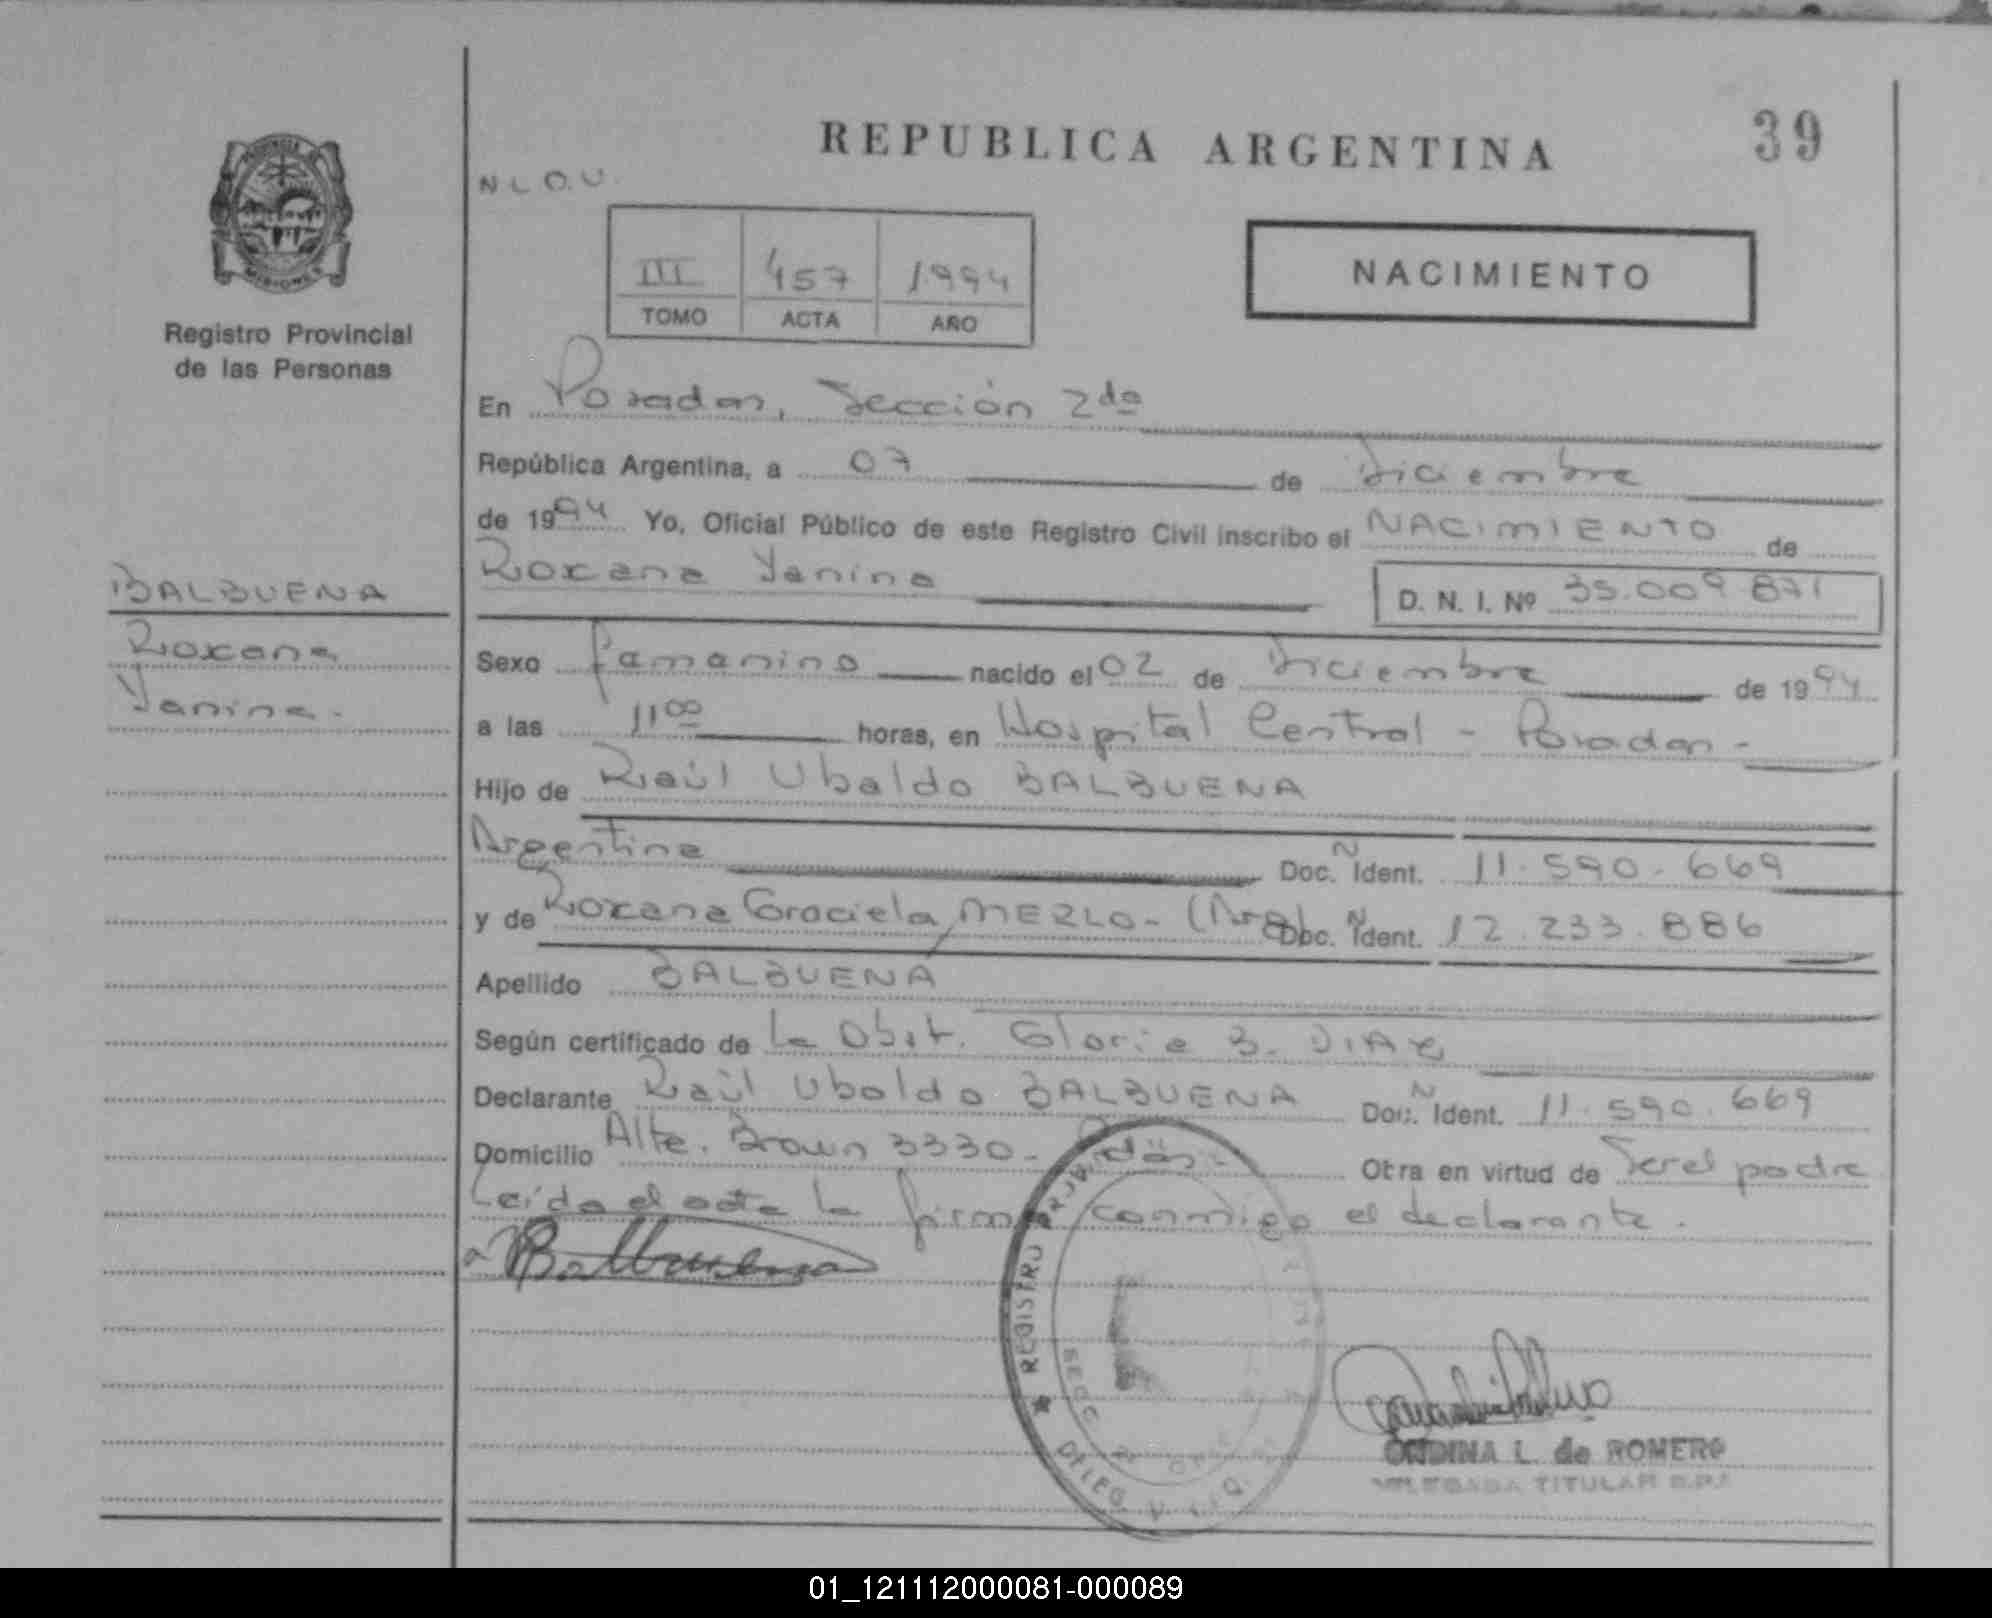 REPUBLICA ARGENTINA
39
N L O.U.
III 457 1994
TOMO ACTA AÑO
NACIMIENTO
Registro Provincial
de las Personas
En Posadas, Sección 2da
República Argentina, a 07 de Diciembre
de 1994 Yo, Oficial Público de este Registro Civil inscribo el NACIMIENTO de
Roxana Yanina D. N. I. Nº 35.009.871
BALBUENA
Roxana
Yanina.
Sexo femenino nacido el 02 de Diciembre de 1994
a las 11 00 horas, en Hospital Central - Posadas -
Hijo de Raúl Ubaldo BALBUENA
Argentina Doc. N Ident. 11.590.669
y de Roxana Graciela MERLO - (Arg) Doc. N Ident. 12.233.886
Apellido BALBUENA
Según certificado de la Obst. Gloria B. DIAZ
Declarante Raúl Ubaldo BALBUENA Doc. N Ident. 11.590.669
Domicilio Alte. Brown 3330 - Pdas - Obra en virtud de Ser el padre
Leída el acta la firma conmigo el declarante.
Balbuena
REGISTRO PROVINCIAL
SECC
DELEG
ONDINA L. de ROMERO
DELEGADA TITULAR R.P.P.
01_121112000081-000089